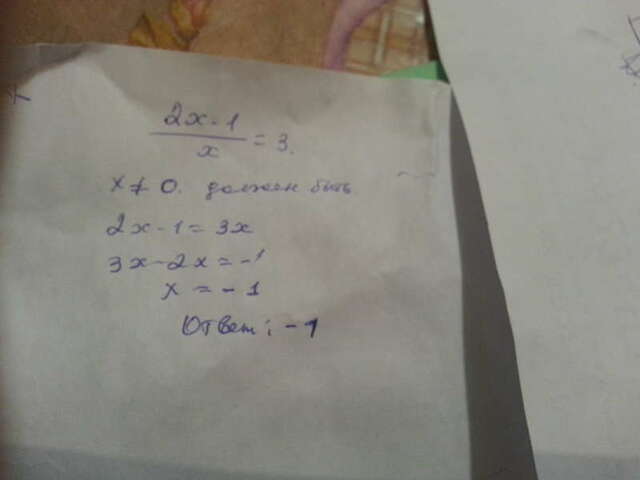 2x-1
x
= 3.
x ≠ 0. должен быть
2x-1 = 3x
3x-2x = -1
x = -1
Ответ: -1